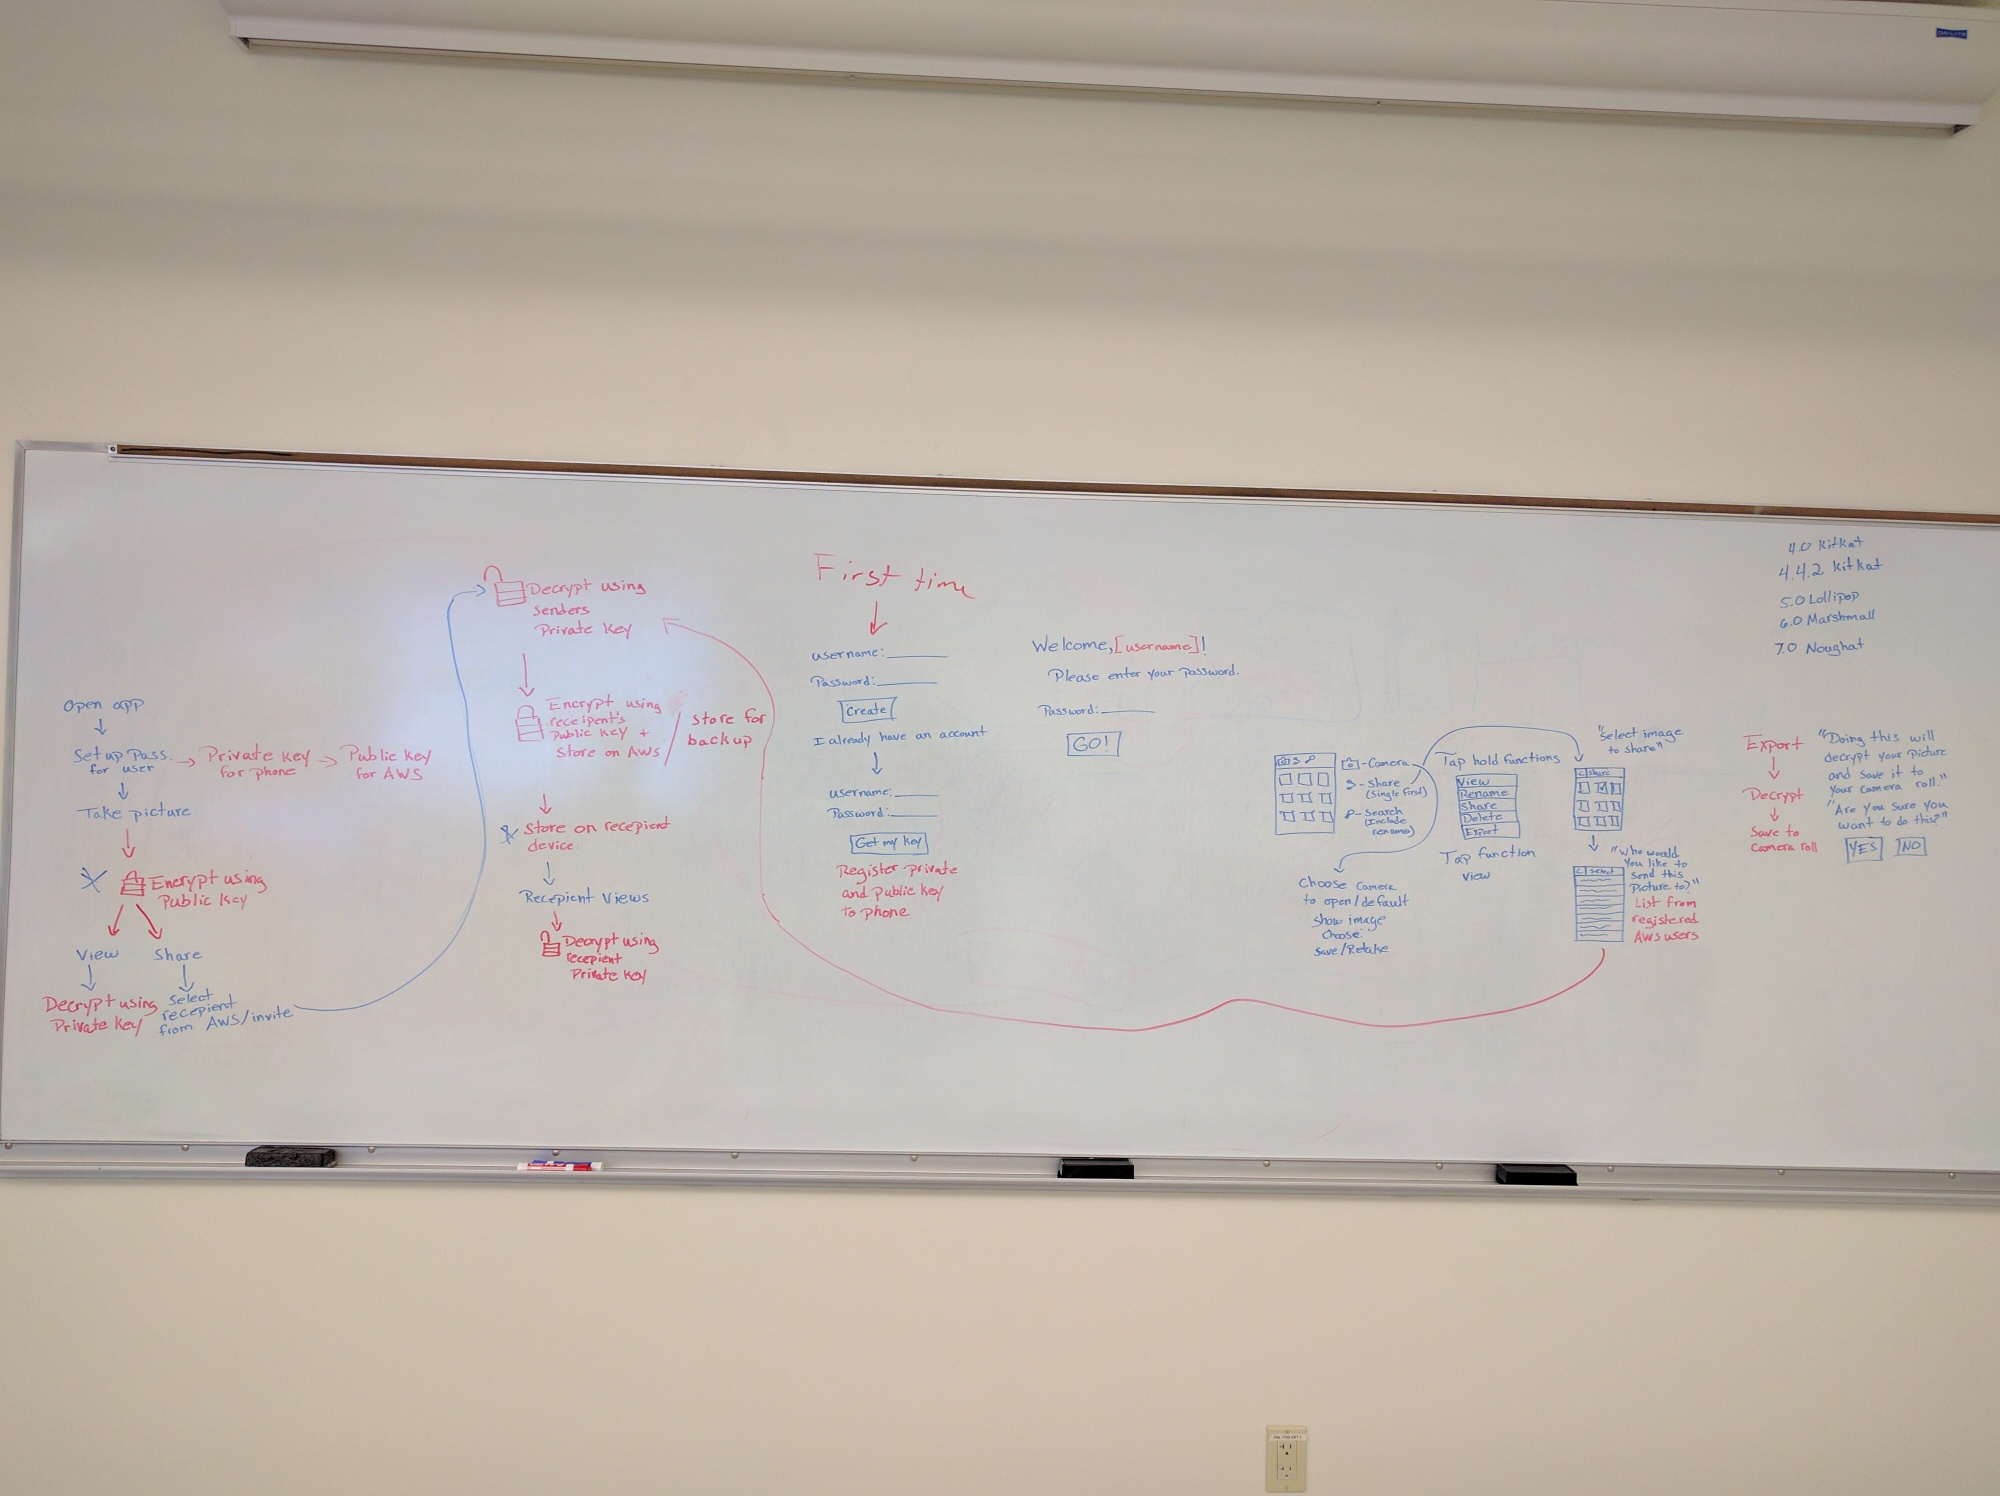 DA-LITE
Open app
Set up Pass.
for user
Private Key
for phone
Public Key
for AWS
Take picture
Encrypt using
Public Key
View
Share
Decrypt using
Private Key
Select
recepient
from AWS/invite
Decrypt using
senders
Private Key
Encrypt using
receipent's
Public Key +
Store on AWS
Store for
backup
Store on recepient
device
Recepient Views
Decrypt using
recepient
Private Key
First time
username:
Password:
Create
I already have an account
username:
Password:
Get my key
Register private
and Public key
to phone
Welcome, [username]!
Please enter your Password.
Password:
GO!
- Camera
- Share
(Single first)
- Search
(Include
rename)
Choose camera
to open/default
Show image
Choose:
Save/Retake
Tap hold functions
View
Rename
Share
Delete
Export
Tap function
View
"Select image
to share"
< Share
"Who would
you like to
send this
Picture to?"
List from
registered
AWS users
< Select
Export
Decrypt
Save to
Camera roll
"Doing this will
decrypt your picture
and save it to
your camera roll."
"Are you sure you
want to do this?"
YES
NO
4.0 KitKat
4.4.2 KitKat
5.0 Lollipop
6.0 Marshmall
7.0 Noughat